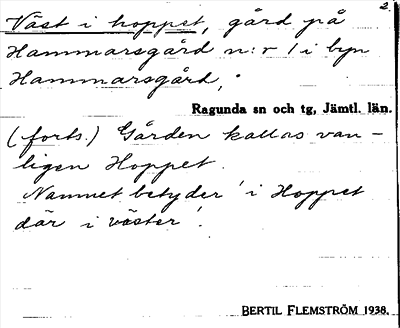 2.
Väst i hoppet, gård på
Hammarsgård n:r 1 i byn
Hammarsgård,
Ragunda sn och tg, Jämtl. län.
(forts.) Gården kallas van-
ligen Hoppet.
Namnet betyder 'i Hoppet
där i väster'.
BERTIL FLEMSTRÖM 1938.